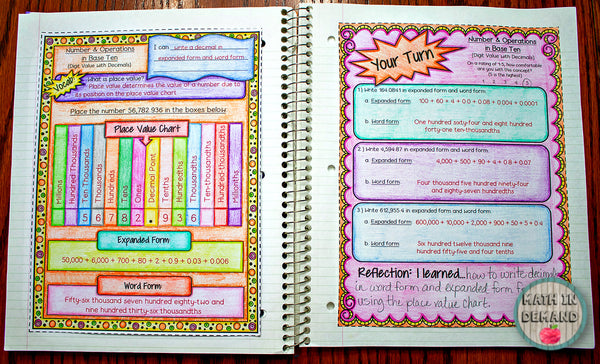 Number & Operations
in Base Ten
(Digit Value with Decimals)
I can write a decimal in
expanded form and word form.
Vocab
What is place value?
Place value determines the value of a number due to
its position on the place value chart.
Place the number 56,782.936 in the boxes below.
Place Value Chart
Millions
Hundred-Thousands
Ten-Thousands
Thousands
Hundreds
Tens
Ones
Decimal Point
Tenths
Hundredths
Thousandths
Ten-thousandths
Hundred-Thousandths
Millionths
5 6 7 8 2 . 9 3 6
Expanded Form
50,000 + 6,000 + 700 + 80 + 2 + 0.9 + 0.03 + 0.006
Word Form
Fifty-six thousand seven hundred eighty-two and
nine hundred thirty-six thousandths
Your Turn
Number & Operations
in Base Ten
(Digit Value with Decimals)
On a rating of 1-5, how comfortable
are you with the concept?
(5 is the highest)
1 2 3 4 5
1.) Write 164.0841 in expanded form and word form.
a. Expanded form: 100 + 60 + 4 + 0.0 + 0.08 + 0.004 + 0.0001
b. Word form:
One hundred sixty-four and eight hundred
forty-one ten-thousandths
2.) Write 4,594.87 in expanded form and word form.
a. Expanded form: 4,000 + 500 + 90 + 4 + 0.8 + 0.07
b. Word form: Four thousand five hundred ninety-four
and eighty-seven hundredths
3.) Write 612,955.4 in expanded form and word form.
a. Expanded form: 600,000 + 10,000 + 2,000 + 900 + 50 + 5 + 0.4
b. Word form: Six hundred twelve thousand nine
hundred fifty-five and four tenths
Reflection: I learned...how to write decimals
in word form and expanded form
using the place value chart.
MATH IN
DEMAND